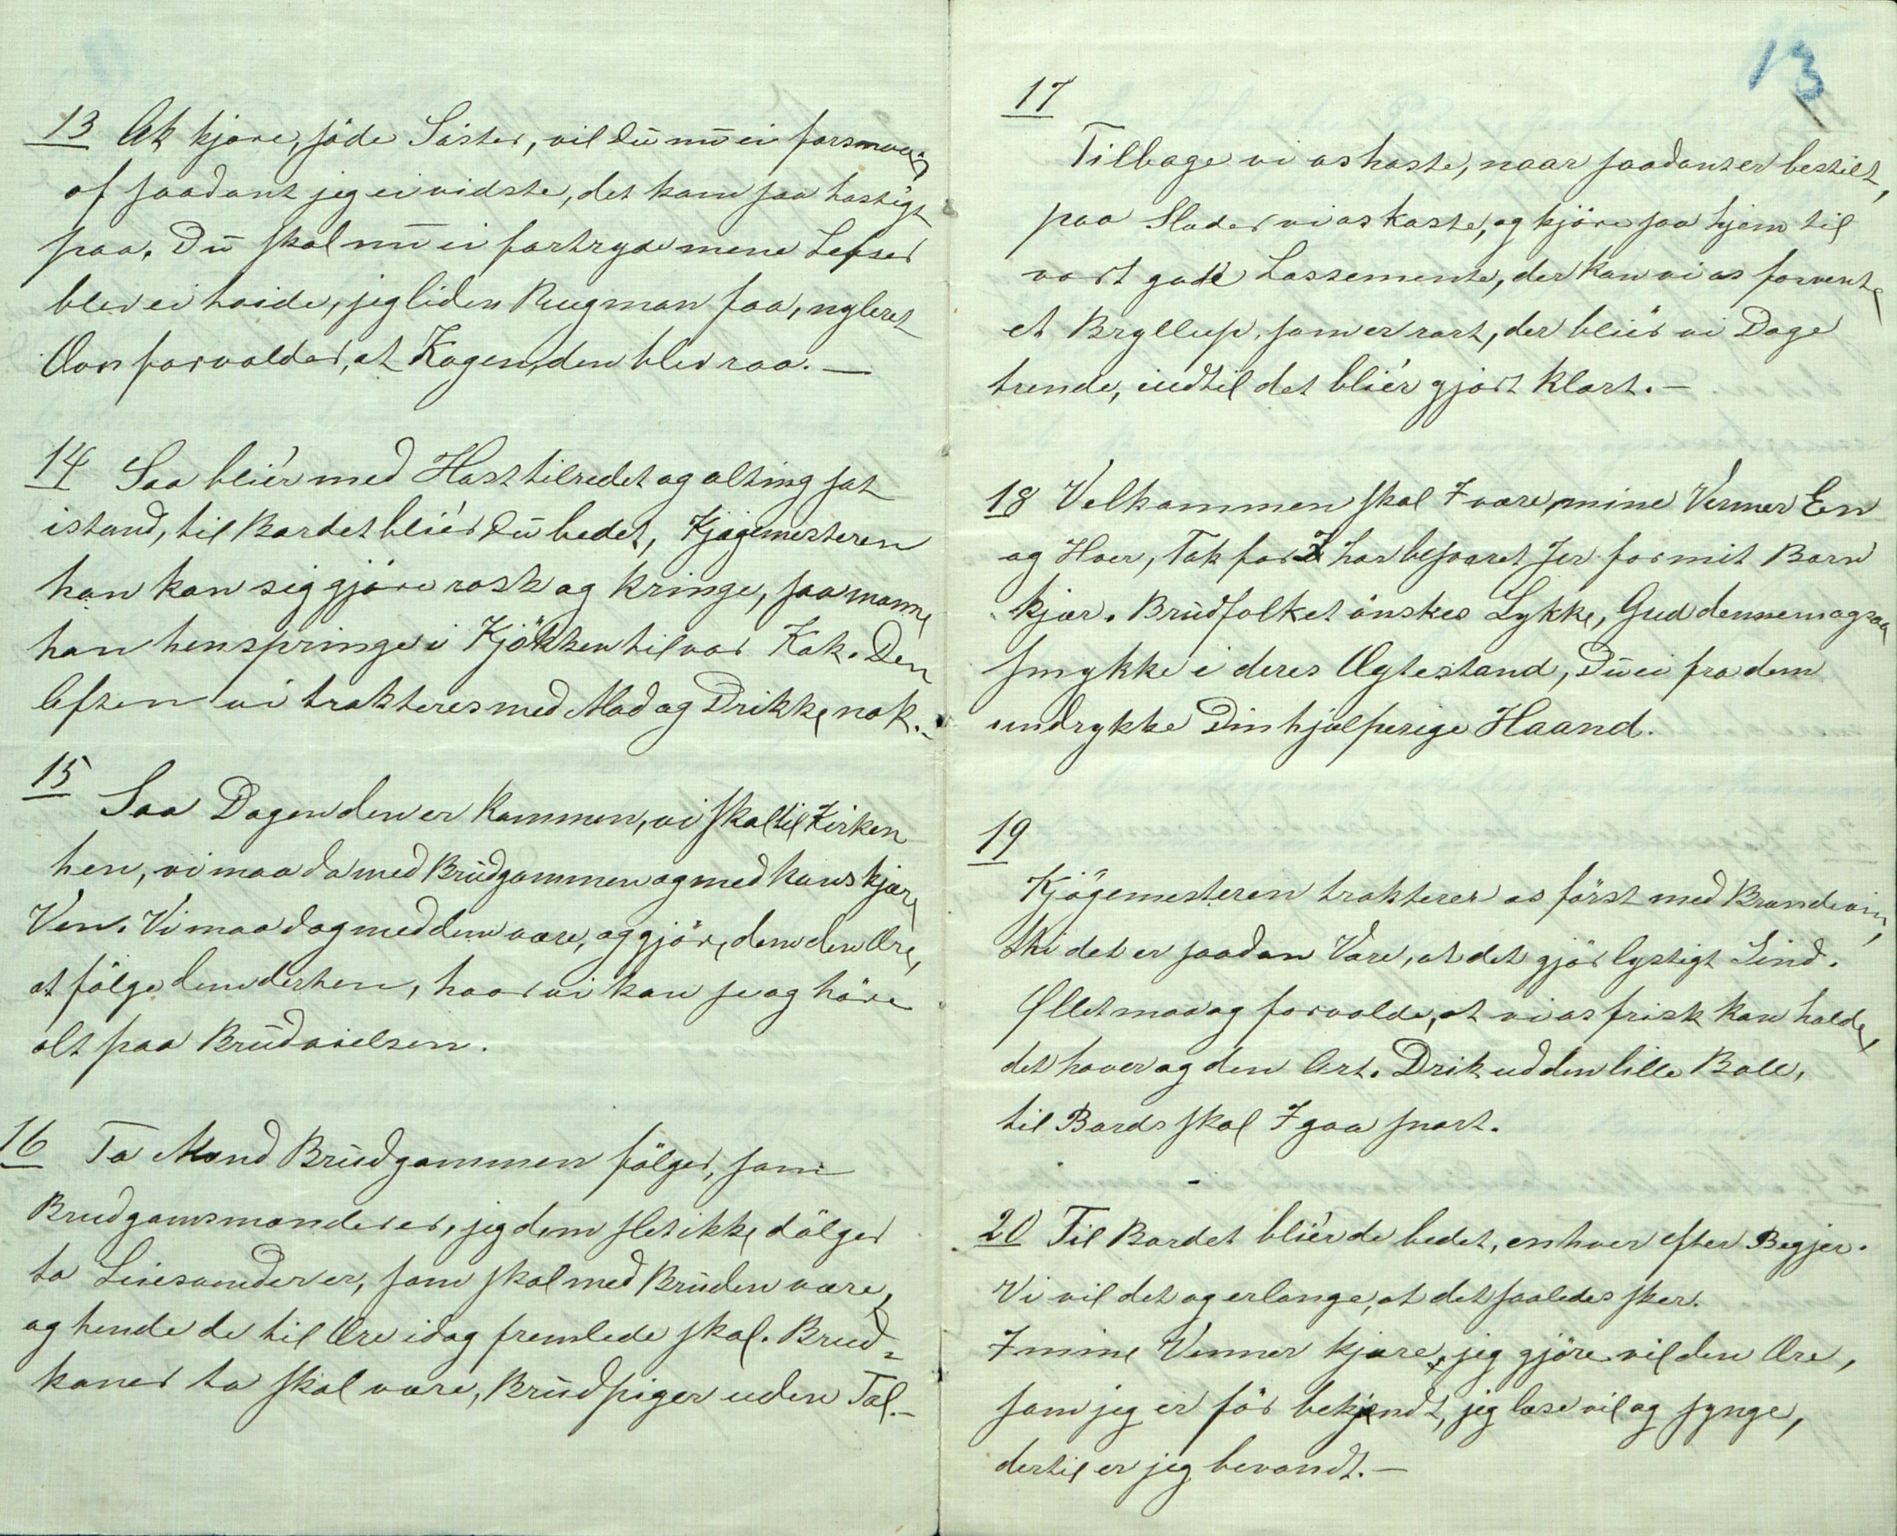 13 Ak kjære, söde Söster, vil Du nu ei forsmaa,
af saadant jeg ei vidste, det kom saa hastigt
paa. Du skal nu ei fortryde mene Lefser
blev ei hvide, jeg liden Rugman faa, nyleret
Ovn forvolder, at Kagen, den blev raa. —
14 Saa bliér med Hast tilredet og alting sat
istand, til Bordet bliér Du bedet, Kjøgemesteren
han kan sig gjöre rask og kringe, saa monne
han henspringe i Kjökken til vor Kok. Den
Aften vi trakteres med Mad og Drikke nok. —
15
Saa Dagen den er kommen, vi skal til Kirken
hen, vi maa da med Brudgommen og med hans kjære
Ven. Vi maa dog med dem være, og gjöre dem den Ære,
at fölge dem derhen, hvor vi kan se og höre
alt paa Brudvielsen.
16 To Mænd Brudgommen fölger, som
Brudgomsmænder er, jeg dem slet ikke dölger
to Leiesvender er, som skal med Bruden være,
og hende de til Ære idag fremlede skal. Brud-
koner to skal være, Brudpiger uden Tal. —
13
17
Tilbage vi os haste, naar saadant er bestilt,
paa Slader vi os kaste, og kjöre saa hjem til
vort gode Lossemente, der kan vi os forvente
et Bryllup, som er rart, der bliér vi Dage
trende, indtil det bliér gjort klart. —
18 Velkommen skal I være, mine Venner En
og Hver, Tak for I har besvaret Jer for mit Barn
kjær. Brudfolket önskes Lykke, Gud dennem ogsaa
smykke i deres Ægtestand, Du ei fra dem
undrykke Din hjælperige Haand.
19
Kjögemesteren trakterer os först med Brændevin,
thi det er saadan Vare, at det gjör lystigt Sind.
Øllet maa og forvolde, at vi os frisk kan holde,
det haver og den Art. Drik ud den lille Bolle,
til Bords skal I gaa snart.
20 Til Bordet bliér de bedet, enhver efter Begjer.
Vi vil det og erlange, at det saaledes sker.
I mine Venner kjære, jeg gjöre vil den Ære,
som jeg er för bekjendt, jeg læse vil og synge,
dertil er jeg bevandt. —